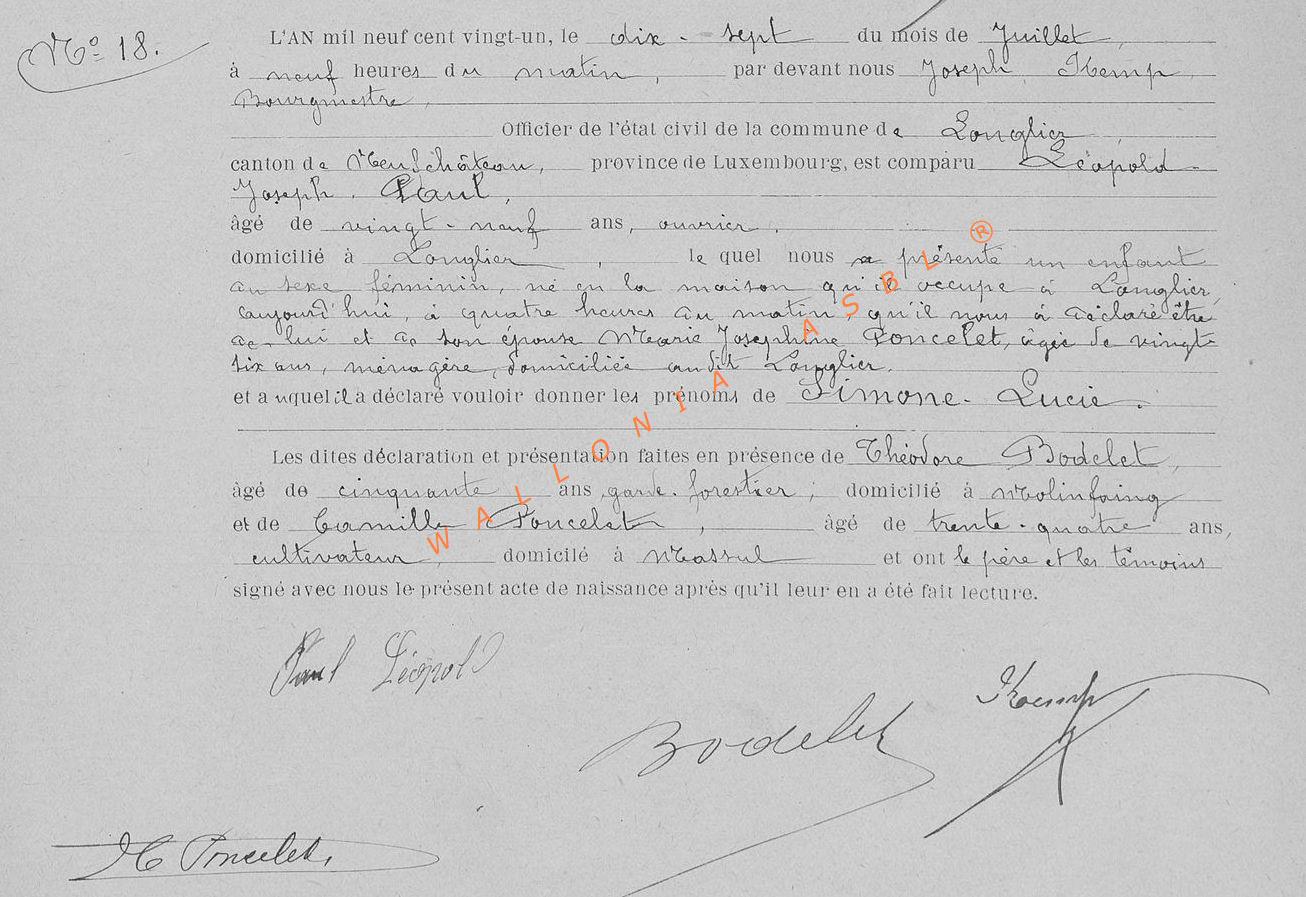 No 18.
L'AN mil neuf cent vingt-un, le dix-sept du mois de Juillet,
à neuf heures du matin, par devant nous Joseph Kemp
Bourgmestre,
Officier de l'état civil de la commune de Longlier,
canton de Neufchâteau, province de Luxembourg, est comparu Léopold
Joseph Paul,
âgé de vingt-neuf ans, ouvrier,
domicilié à Longlier, le quel nous a présenté un enfant
du sexe féminin, né en la maison qu'il occupe à Longlier,
aujourd'hui, à quatre heures du matin, qu'il nous à déclaré être
de lui et de son épouse Marie Josephine Poncelet, âgée de vingt
six ans, ménagère, domiciliée audit Longlier.
et auquel il a déclaré vouloir donner les prénoms de Simone-Lucie.
Les dites déclaration et présentation faites en présence de Théodore Bodelet,
âgé de cinquante ans, garde-forestier, domicilié à Molinfaing
et de Camille Poncelet, âgé de trente-quatre ans,
cultivateur, domicilé à Massul et ont le père et les témoins
signé avec nous le présent acte de naissance après qu'il leur en a été fait lecture.
Paul Léopold
Kemp
Bodelet
C Poncelet
WALLONIA ASBL ®